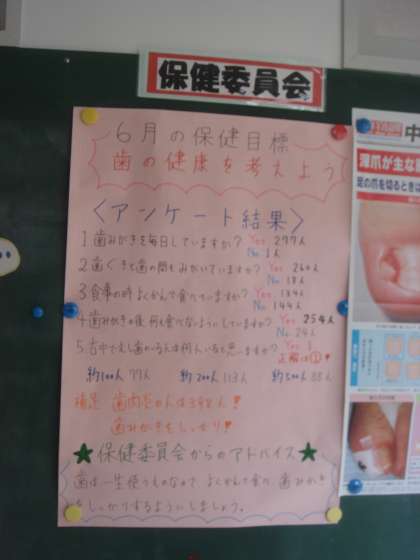 保健委員会
6月の保健目標
歯の健康を考えよう
〈アンケート結果〉
1.歯みがきを毎日していますか? Yes 277人
No 1人
2.歯ぐきと歯の間もみがいていますか? Yes 260人
No 18人
3.食事の時よくかんで食べていますか? Yes 134人
No 144人
4.歯みがきの後、何も食べないようにしていますか? Yes 254人
No 24人
5.古中でむし歯の
約100人 77人 約200人 113人 約300人 88人
補足 歯肉炎の人は
歯みがきをしっかり!
★保健委員会からのアドバイス★
歯は一生使うものなので、よくかんで食べ、歯みがき
をしっかりするようにしましょう。
中
深爪が主な
足の爪を切るときは